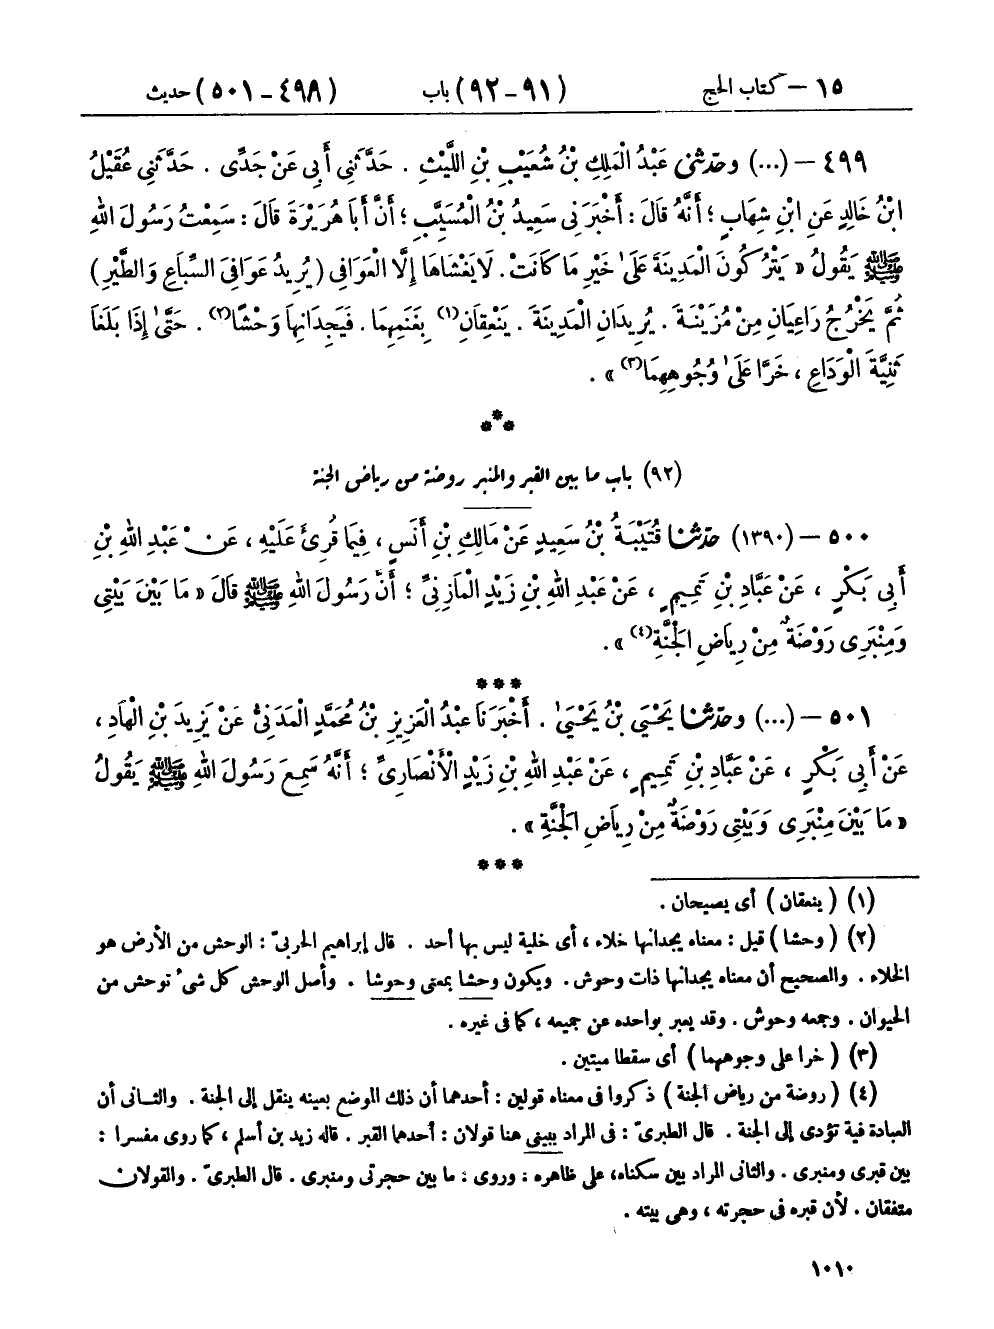 ١٥ – كتاب الحج (٩١-٩٢) باب (٤٩٨-٥٠١) حديث
٤٩٩ – (...) وحَدَّثَنِي عَبْدُ الْمَلِكِ بْنُ شُعَيْبِ بْنِ اللَّيْثِ . حَدَّثَنِي أَبِي عَنْ جَدِّي . حَدَّثَنِي عُقَيْلُ
ابْنُ خَالِدٍ عَنِ ابْنِ شِهَابٍ ؛ أَنَّهُ قَالَ : أَخْبَرَنِي سَعِيدُ بْنُ الْمُسَيَّبِ ؛ أَنَّ أَبَا هُرَيْرَةَ قَالَ : سَمِعْتُ رَسُولَ اللهِ
ﷺ يَقُولُ « يَتْرُكُونَ الْمَدِينَةَ عَلَىٰ خَيْرِ مَا كَانَتْ . لَا يَغْشَاهَا إِلَّا الْعَوَافِي ( يُرِيدُ عَوَافِيَ السِّبَاعِ وَالطَّيْرِ )
ثُمَّ يَخْرُجُ رَاعِيَانِ مِنْ مُزَيْنَةَ . يُرِيدَانِ الْمَدِينَةَ . يَنْعِقَانِ(١) بِغَنَمِهِمَا . فَيَجِدَانِهَا وَحْشًا(٢) . حَتَّىٰ إِذَا بَلَغَا
ثَنِيَّةَ الْوَدَاعِ ، خَرَّا عَلَىٰ وُجُوهِهِمَا(٣) » .
***
(٩٢) باب ما بين القبر والمنبر روضة من رياض الجنة
٥٠٠ – (١٣٩٠) حَدَّثَنَا قُتَيْبَةُ بْنُ سَعِيدٍ عَنْ مَالِكِ بْنِ أَنَسٍ ، فِيمَا قُرِئَ عَلَيْهِ ، عَنْ عَبْدِ اللهِ بْنِ
أَبِي بَكْرٍ ، عَنْ عَبَّادِ بْنِ تَمِيمٍ ، عَنْ عَبْدِ اللهِ بْنِ زَيْدٍ الْمَازِنِيِّ ؛ أَنَّ رَسُولَ اللهِ ﷺ قَالَ « مَا بَيْنَ بَيْتِي
وَمِنْبَرِي رَوْضَةٌ مِنْ رِيَاضِ الْجَنَّةِ(٤) » .
***
٥٠١ – (...) وحَدَّثَنَا يَحْيَى بْنُ يَحْيَىٰ . أَخْبَرَنَا عَبْدُ الْعَزِيزِ بْنُ مُحَمَّدٍ الْمَدَنِيُّ عَنْ يَزِيدَ بْنِ الْهَادِ ،
عَنْ أَبِي بَكْرٍ ، عَنْ عَبَّادِ بْنِ تَمِيمٍ ، عَنْ عَبْدِ اللهِ بْنِ زَيْدٍ الْأَنْصَارِيِّ ؛ أَنَّهُ سَمِعَ رَسُولَ اللهِ ﷺ يَقُولُ
« مَا بَيْنَ مِنْبَرِي وَبَيْتِي رَوْضَةٌ مِنْ رِيَاضِ الْجَنَّةِ » .
***
(١) ( ينعقان ) أى يصيحان .
(٢) ( وحشا ) قيل : معناه يجدانها خلاء ، أى خلية ليس بها أحد . قال إبراهيم الحربىّ : الوحش من الأرض هو
الخلاء . والصحيح أن معناه يجدانها ذات وحوش . ويكون وحشا بمعنى وحوشا . وأصل الوحش كل شىء توحش من
الحيوان . وجمعه وحوش . وقد يعبر بواحده عن جميعه ، كما فى غيره .
(٣) ( خرا على وجوههما ) أى سقطا ميتين .
(٤) ( روضة من رياض الجنة ) ذكروا فى معناه قولين : أحدهما أن ذلك الموضع بعينه ينقل إلى الجنة . والثانى أن
العبادة فية تؤدى إلى الجنة . قال الطبرىّ : فى المراد ببيتى هنا قولان : أحدهما القبر . قاله زيد بن أسلم ، كما روى مفسرا :
بين قبرى ومنبرى . والثانى المراد بين سكناه ، على ظاهره : وروى : ما بين حجرتى ومنبرى . قال الطبرىّ . والقولان
متفقان . لأن قبره فى حجرته ، وهى بيته .
١٠١٠